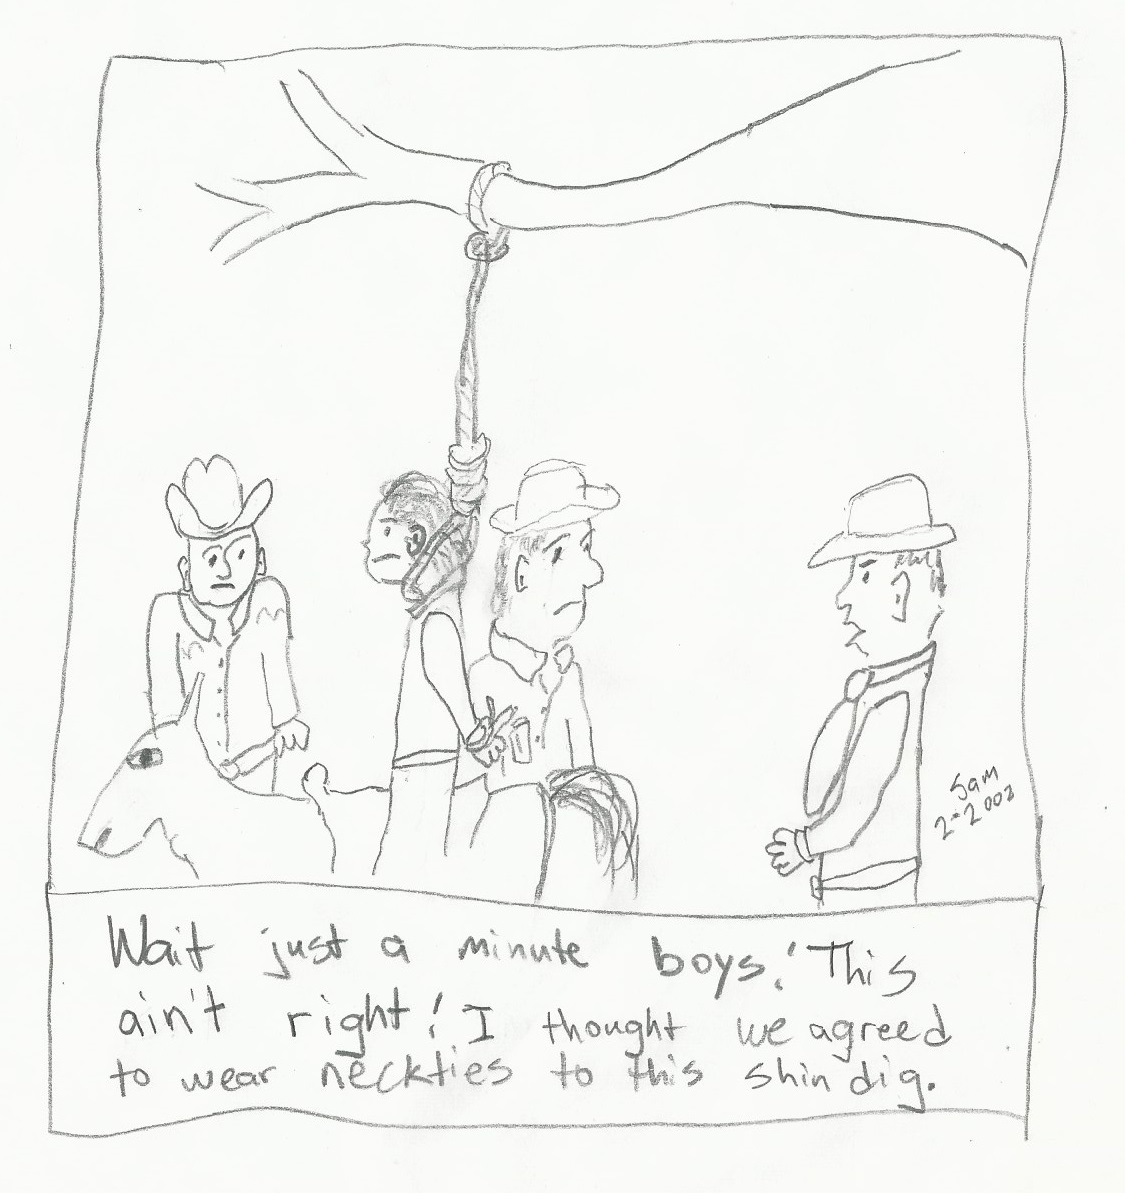 Sam
2-2002
Wait just a minute boys! This
ain't right! I thought we agreed
to wear neckties to this shindig.